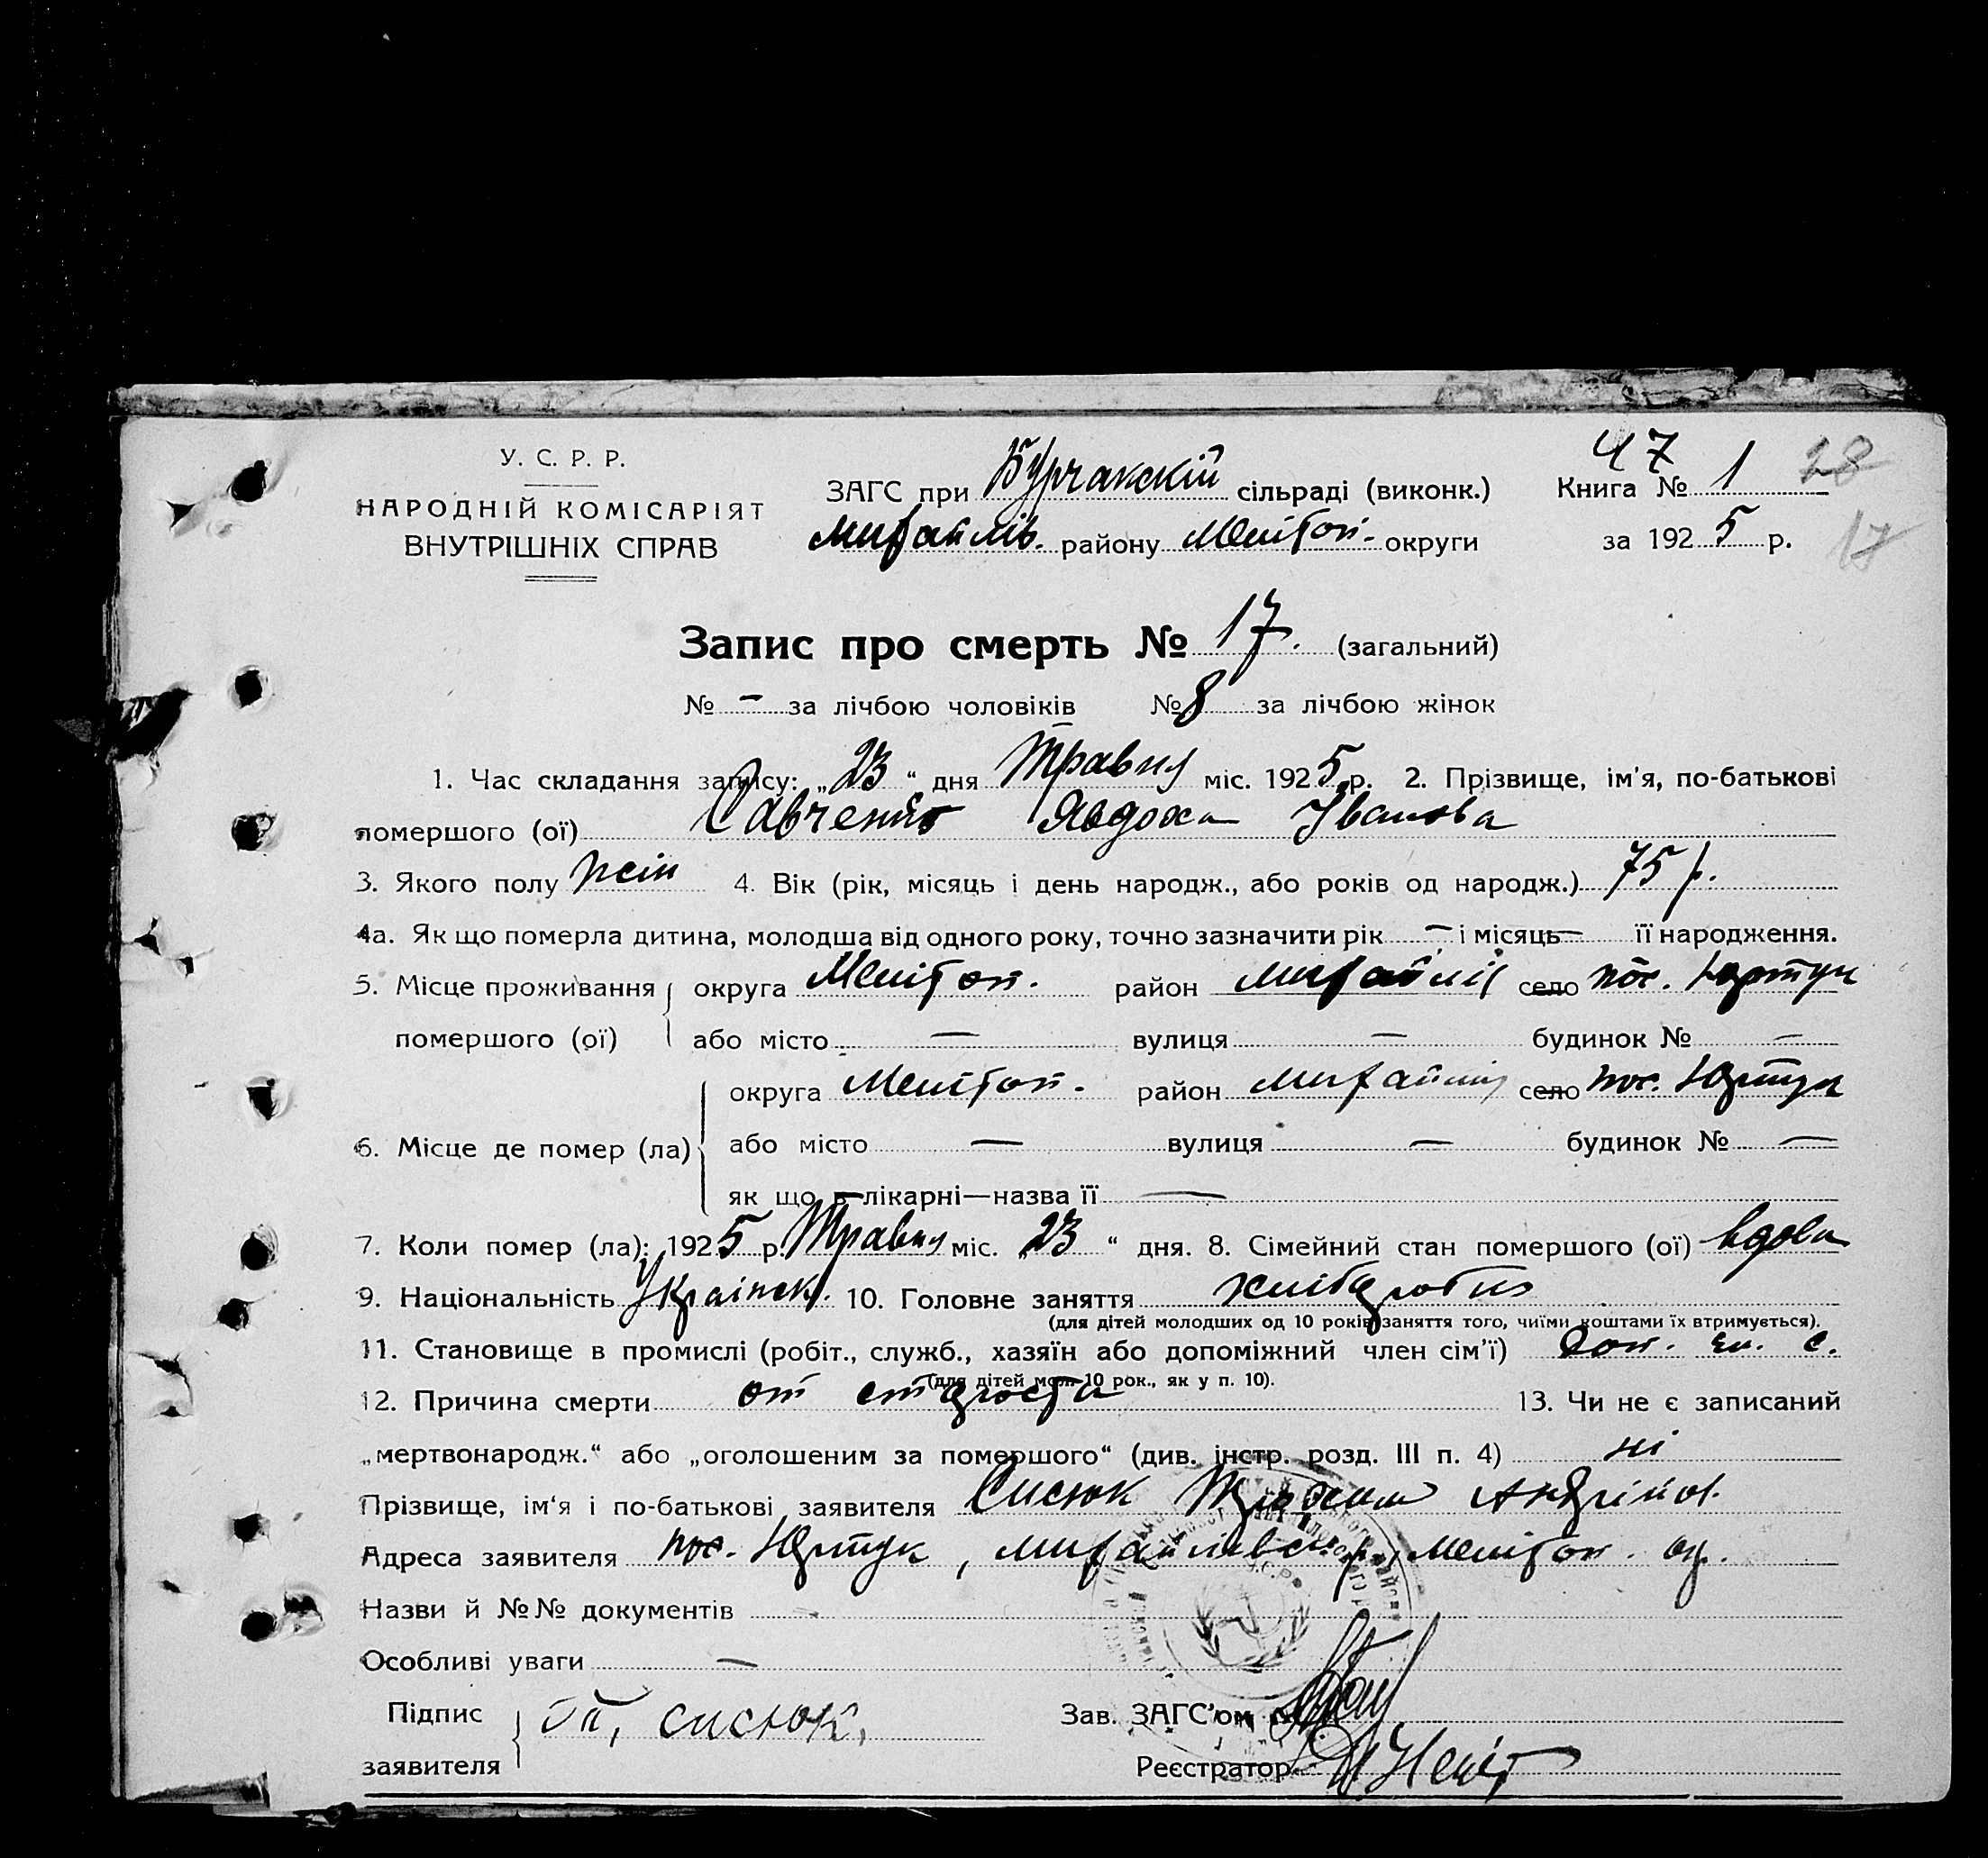 47
У. С. Р. Р.
ЗАГС при Бурчакскій сільраді (виконк.) Книга № 1 28
НАРОДНІЙ КОМІСАРІЯТ
ВНУТРІШНІХ СПРАВ
Михайлів. району Мелітоп. округи за 1925 р. 17
Запис про смерть № 17. (загальний)
№ – за лічбою чоловіків № 8 за лічбою жінок
1. Час складання запису: „23“ дня Травня міс. 1925 р. 2. Прізвище, ім'я, по-батькові
помершого (ої) Савченко Явдоха Іванова
3. Якого полу жін 4. Вік (рік, місяць і день народж., або років од народж.) 75 р.
4а. Як що померла дитина, молодша від одного року, точно зазначити рік – і місяць – її народження.
5. Місце проживання округа Мелітоп. район Михайлів село пос. Юртук
помершого (ої) або місто – вулиця – будинок № –
округа Мелітоп. район Михайлів село пос. Юртук
6. Місце де помер (ла) або місто – вулиця – будинок № –
як що в лікарні—назва її –
7. Коли помер (ла): 1925 р. Травня міс. „23“ дня. 8. Сімейний стан помершого (ої) вдова
9. Національність Українск. 10. Головне заняття хлібороб
(для дітей молодших од 10 років заняття того, чиїми коштами їх втримується).
11. Становище в промислі (робіт., служб., хазяїн або допоміжний член сім'ї) доп. чл. с.
(для дітей мол. 10 рок., як у п. 10).
12. Причина смерти от старости 13. Чи не є записаний
„мертвонародж.“ або „оголошеним за помершого“ (див. інстр. розд. III п. 4) ні
Прізвище, ім'я і по-батькові заявителя Сисюк Трохим
Адреса заявителя пос. Юртук, Михайлівськ. р., Мелітоп. ок.
Назви й №№ документів –
Особливі уваги –
Підпис
заявителя Сисюк.
Зав. ЗАГС'ом
Реєстратор